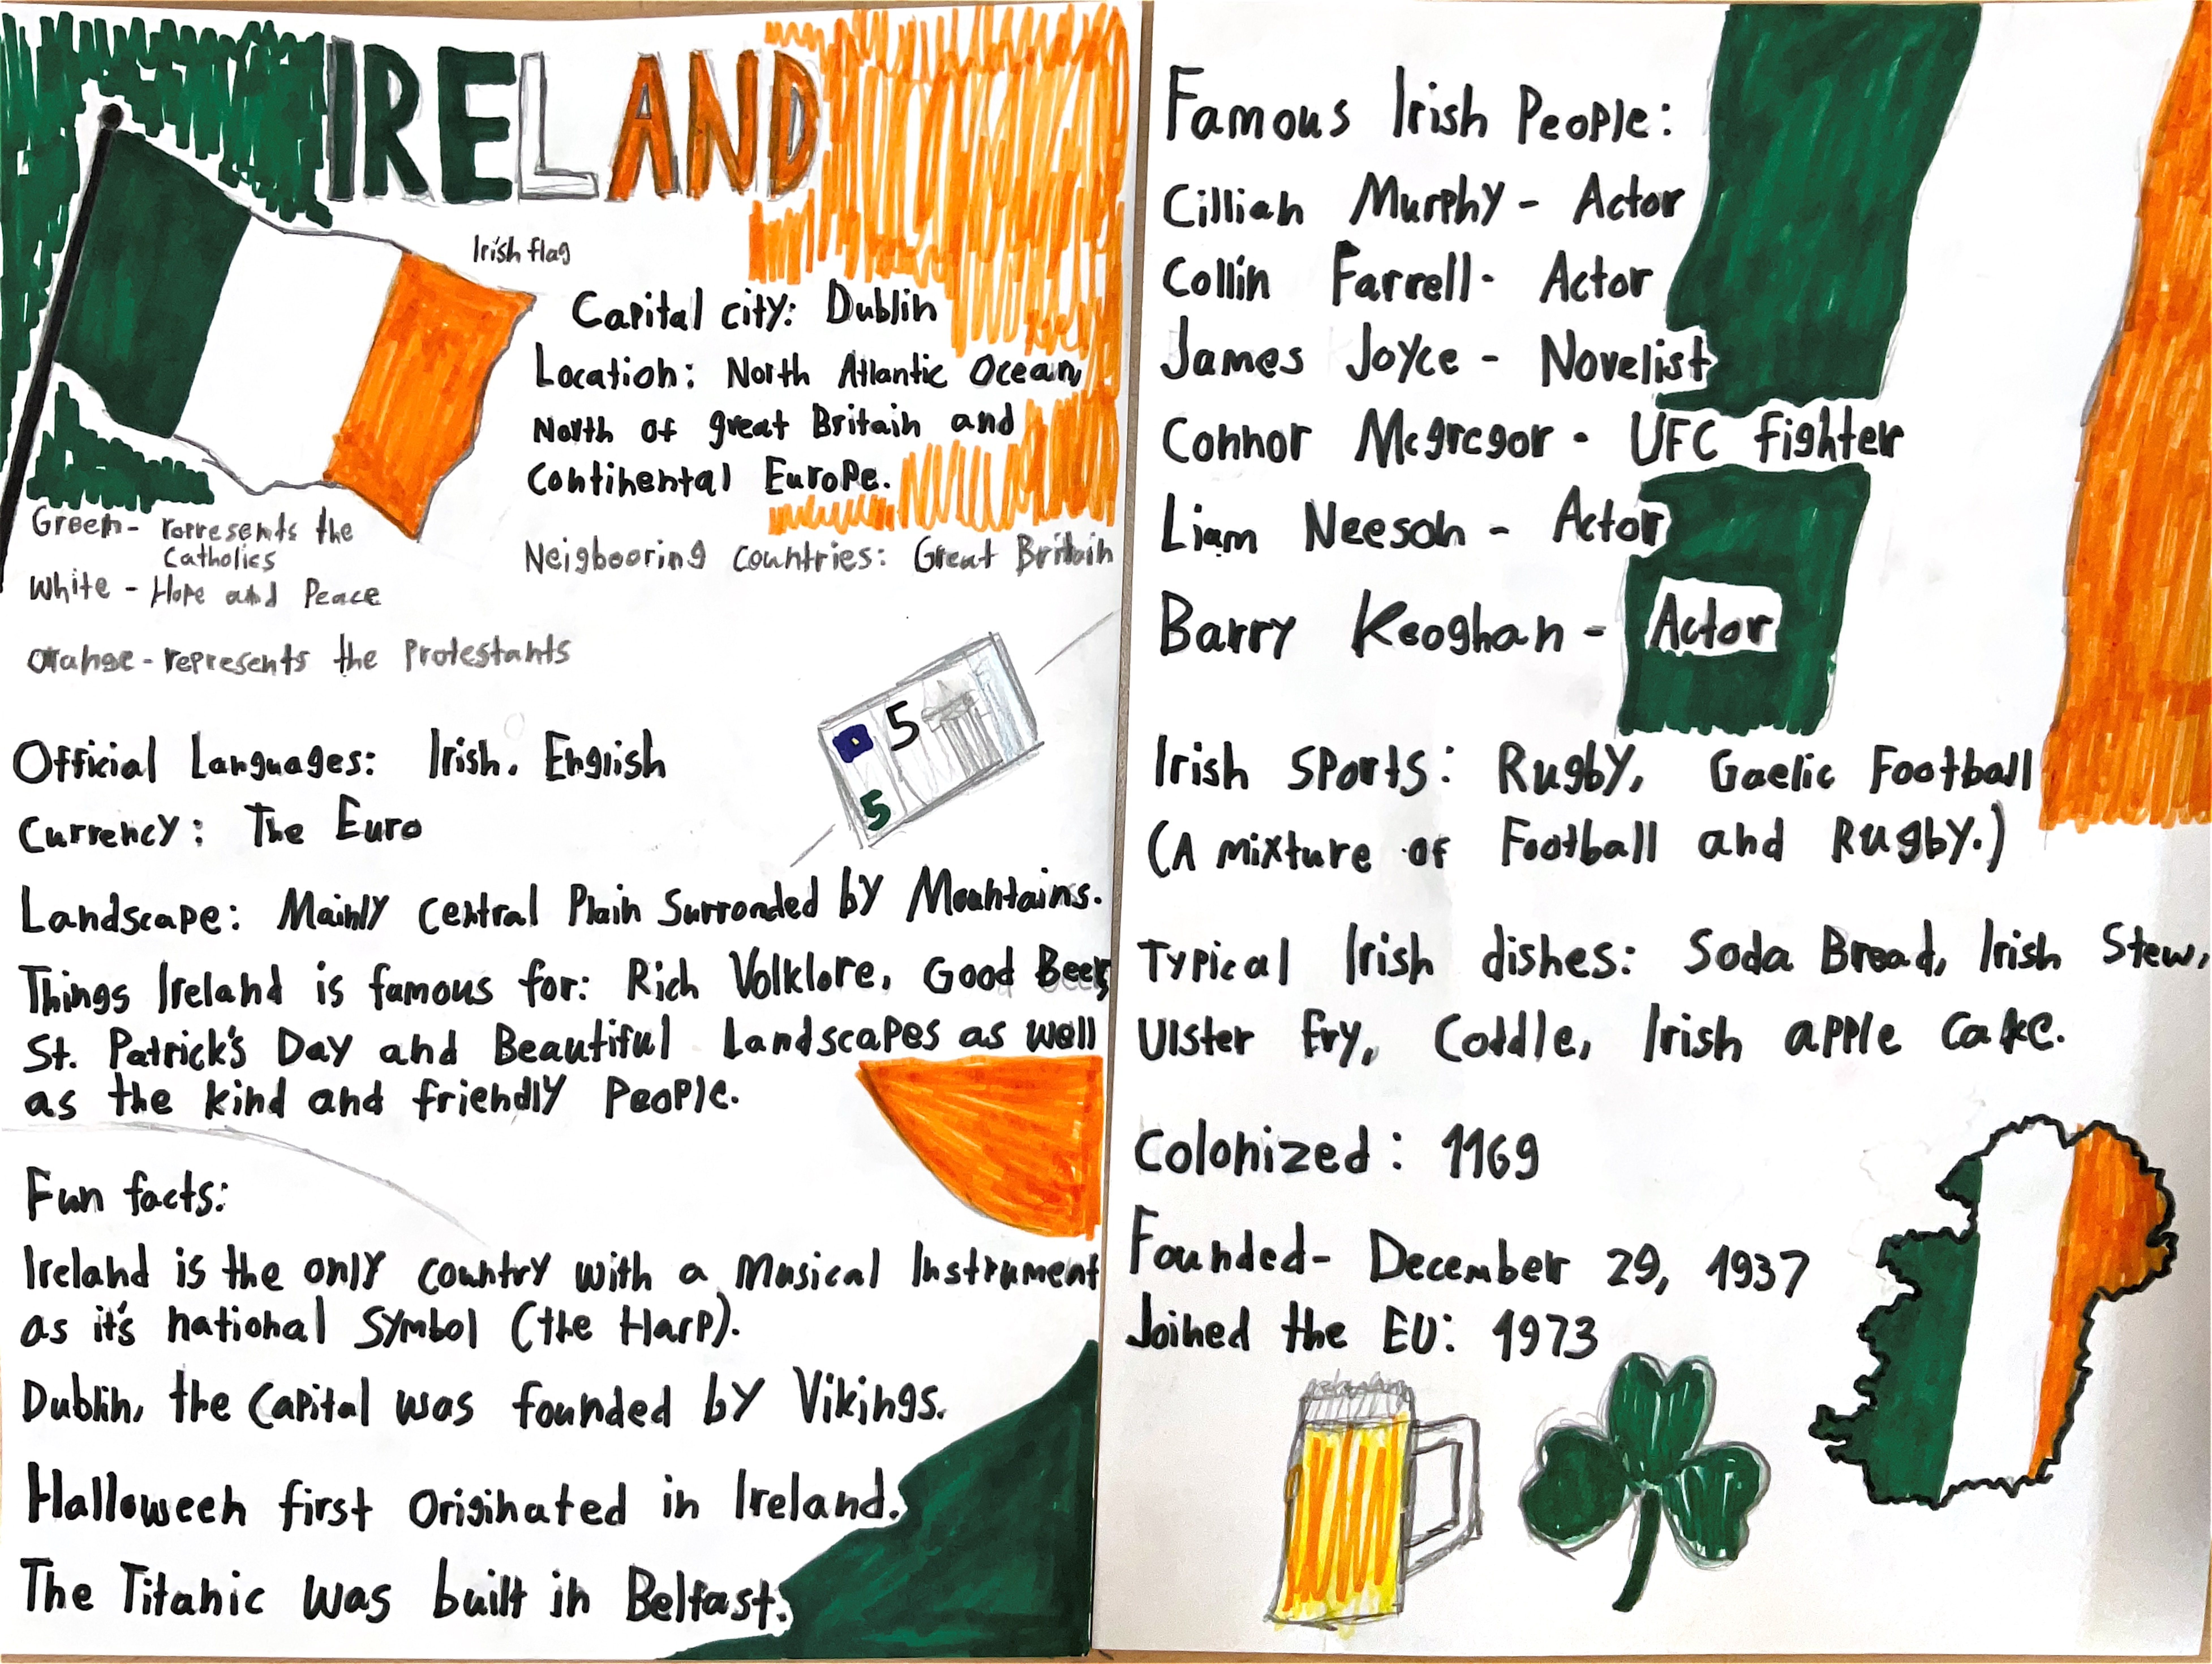 IRELAND
Irish flag
Capital city: Dublin
Location: North Atlantic Ocean,
North of great Britain and
Continental Europe.
Green- rapresents the
Catholics
White - Hope and Peace
orange - represents the Protestants
Neigbooring countries: Great Britain
5
5
Official Languages: Irish. English
Currency: The Euro
Landscape: Mainly Central Plain Surronded by Mountains.
Things Ireland is famous for: Rich Volklore, Good Beer,
St. Patrick's Day and Beautiful Landscapes as well
as the kind and friendly People.
Fun facts:
Ireland is the only country with a musical Instrument
as it's national Symbol (the Harp).
Dublin, the Capital was founded by Vikings.
Halloween first originated in Ireland.
The Titanic was built in Belfast.
Famous Irish People:
Cillian Murphy - Actor
Collin Farrell - Actor
James Joyce - Novelist
Connor Mcgregor - UFC fighter
Liam Neeson - Actor
Barry Keoghan - Actor
Irish Sports: Rugby, Gaelic Football
(A mixture of Football and Rugby.)
Typical Irish dishes: Soda Bread, Irish Stew,
Ulster fry, Coddle, Irish apple cake.
Colonized: 1169
Founded- December 29, 1937
Joined the EU: 1973